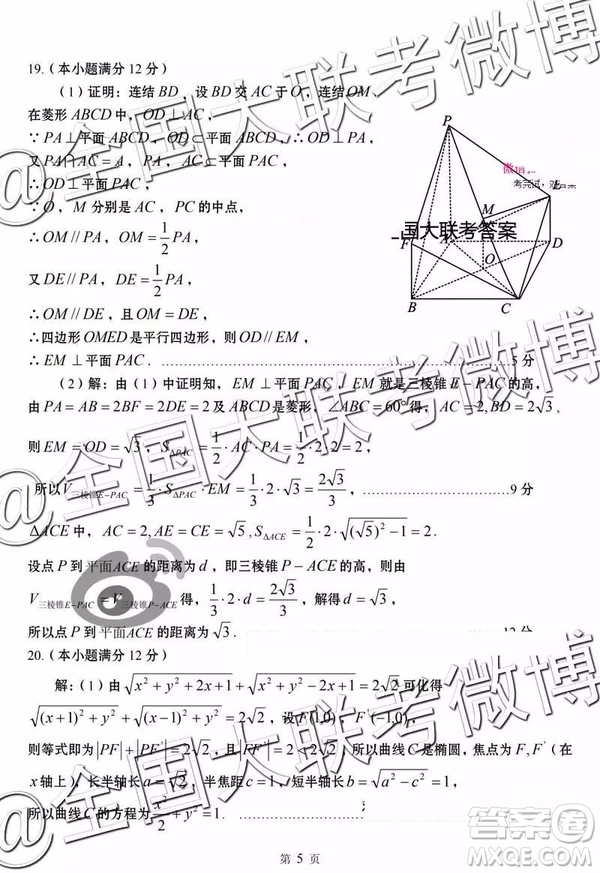 19.(本小题满分 12 分)
(1)证明:连结 BD,设 BD 交 AC 于 O,连结 OM,
在菱形 ABCD 中,OD⊥AC,
∵PA⊥平面 ABCD,OD⊂平面 ABCD,∴OD⊥PA,
又 PA∩AC=A,PA、AC⊂平面 PAC,
∴OD⊥平面 PAC,
∵O,M 分别是 AC,PC 的中点,
∴OM//PA,OM=1/2 PA,
又 DE//PA,DE=1/2 PA,
∴OM//DE,且 OM=DE,
∴四边形 OMED 是平行四边形,则 OD//EM,
∴EM⊥平面 PAC. 5 分
(2)解:由(1)中证明知,EM⊥平面 PAC,EM 就是三棱锥 E-PAC 的高,
由 PA=AB=2BF=2DE=2 及 ABCD 是菱形,∠ABC=60°得,AC=2,BD=2√3,
则 EM=OD=√3,S△PAC=1/2·AC·PA=1/2·2·2=2,
所以 V三棱锥E-PAC=1/3·S△PAC·EM=1/3·2·√3=2√3/3,……………………9 分
△ACE 中,AC=2,AE=CE=√5,S△ACE=1/2·2·√((√5)²-1)=2.
设点 P 到平面ACE 的距离为 d,即三棱锥 P-ACE 的高,则由
V三棱锥E-PAC=V三棱锥P-ACE 得,1/3·2·d=2√3/3,解得 d=√3,
所以点 P 到平面ACE 的距离为 √3. 12 分
20.(本小题满分 12 分)
解:(1)由 √(x²+y²+2x+1)+√(x²+y²-2x+1)=2√2 可化得
√((x+1)²+y²)+√((x-1)²+y²)=2√2,设 F(1,0),F'(-1,0),
则等式即为 |PF|+|PF'|=2√2,且 |FF'|=2<2√2,所以曲线 C 是椭圆,焦点为 F,F'(在
x 轴上),长半轴长 a=√2,半焦距长 c=1,短半轴长 b=√(a²-c²)=1,
所以曲线 C 的方程为 x²/2+y²=1. ……………………
P
E
M
F
A
D
O
B
C
国大联考答案
@全国大联考微博
@全国大联考微博
@全国大联考微博
答案卷
MXQE.COM
第 5 页